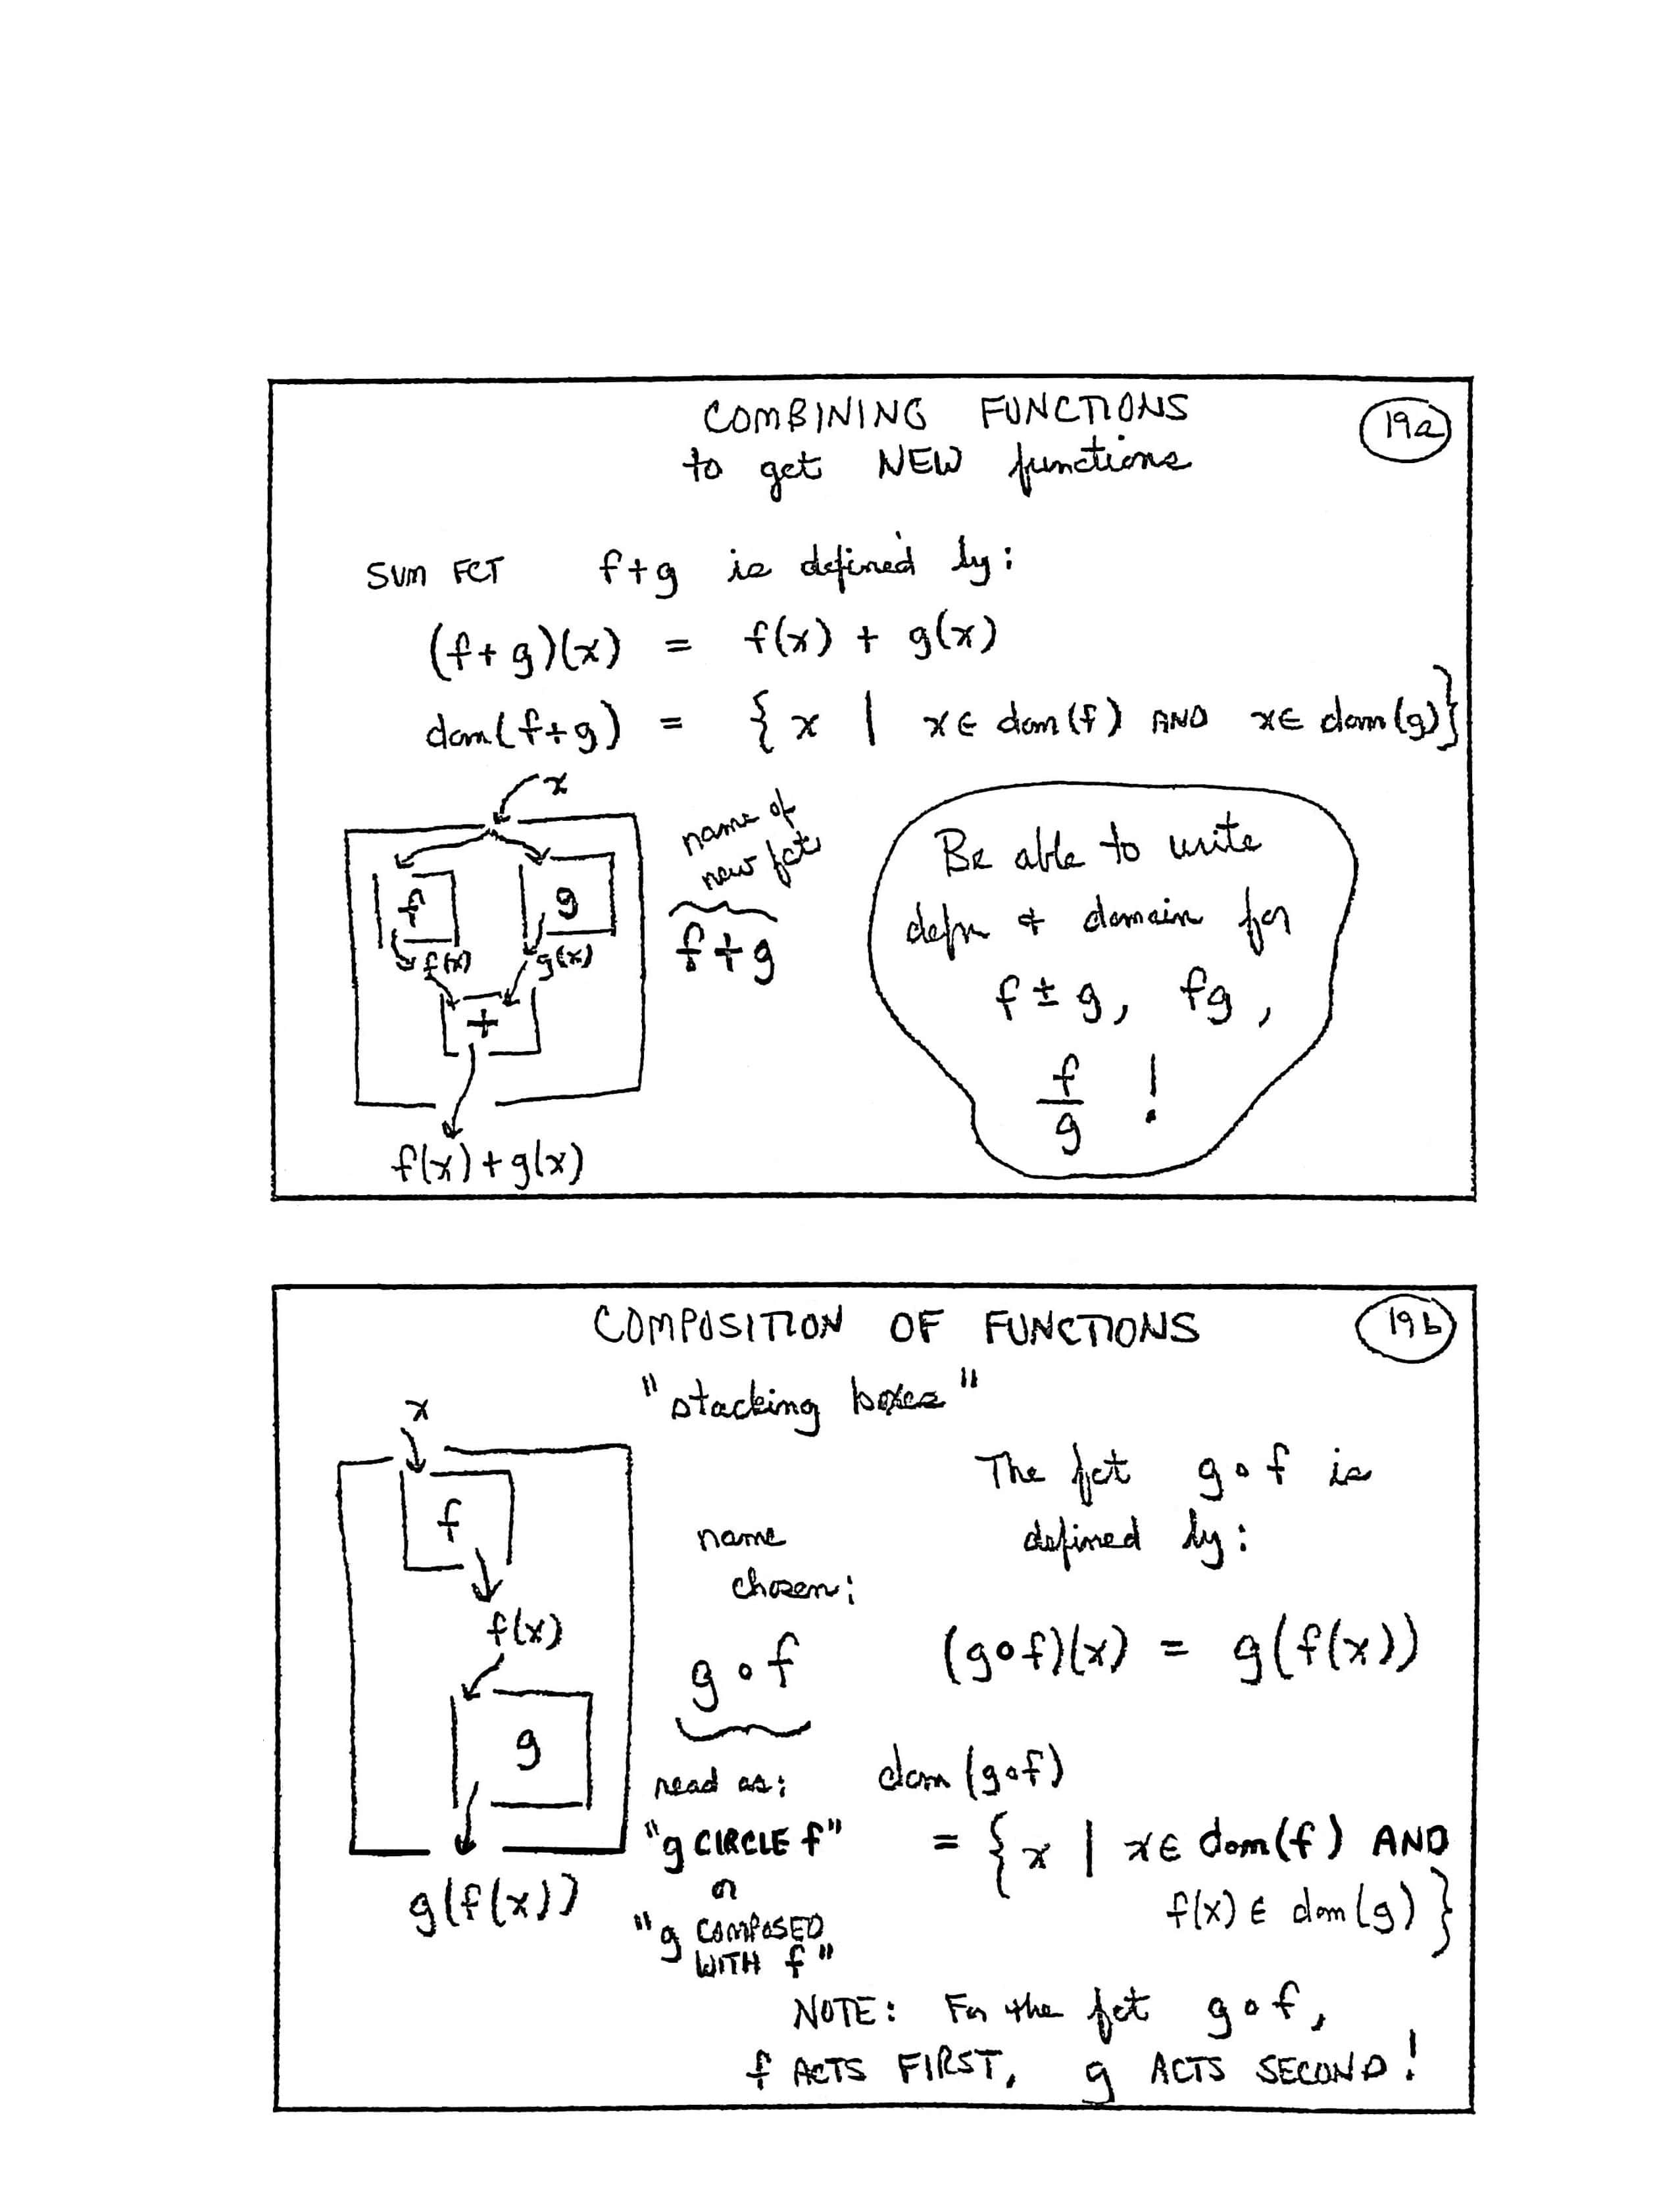 COMBINING FUNCTIONS
19a
to get NEW functions
SUM FCT f+g is defined by:
(f+g)(x) = f(x) + g(x)
dom(f+g) = { x | x∈ dom(f) AND x∈ dom(g)}
x
name of
new fct
f
g
f(x)
g(x)
f+g
+
f(x)+g(x)
Be able to write
defn & domain for
f ± g, fg,
f
g
!
COMPOSITION OF FUNCTIONS
19b
"stacking boxes"
x
f
f(x)
g
g(f(x))
name
chosen:
g∘f
read as:
"g CIRCLE f"
or
"g COMPOSED
WITH f"
The fct g∘f is
defined by:
(g∘f)(x) = g(f(x))
dom (g∘f)
= { x | x∈ dom(f) AND
f(x) ∈ dom(g) }
NOTE: For the fct g∘f,
f ACTS FIRST, g ACTS SECOND!